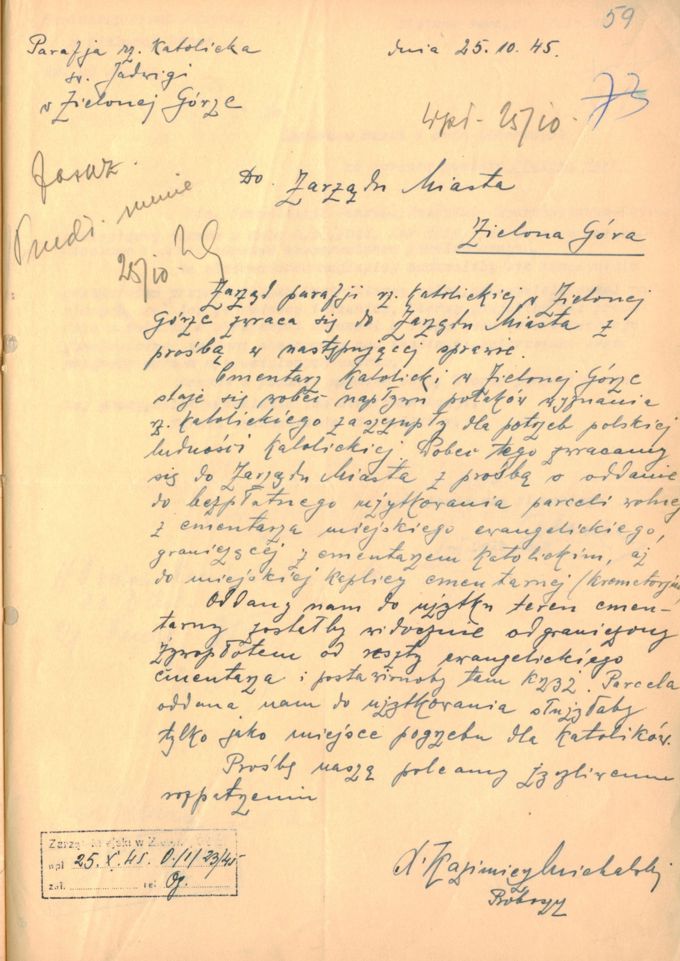 59
Parafja rz. Katolicka
św. Jadwigi
w Zielonej Górze
dnia 25.10.45.
Wpł. 25/10.
25/10.
Do Zarządu Miasta
Zielona Góra
Zarząd parafji rz. Katolickiej w Zielonej
Górze zwraca się do Zarządu Miasta z
prośbą w następującej sprawie.
Cmentarz Katolicki w Zielonej Górze
staje się wobec napływu polaków wyznania
rz. Katolickiego zaszczupły dla potrzeb polskiej
ludności Katolickiej. Wobec tego zwracamy
się do Zarządu Miasta z prośbą o oddanie
do bezpłatnego użytkowania parceli wolnej
z cmentarza miejskiego ewangelickiego,
graniczącej z cmentarzem Katolickim, aż
do miejskiej Kaplicy cmentarnej /Krematorjum
Oddany nam do użytku teren cmen-
tarny zostałby widocznie odgraniczony
żywopłotem od reszty ewangelickiego
cmentarza i postawionoby tam Krzyż. Parcela
oddana nam do użytkowania służyłaby
tylko jako miejsce pogrzebu dla Katolików.
Prośbę naszą polecamy życzliwemu
rozpatrzeniu
X. Kazimierz Michalski
Proboszcz
wpł. 25.X.45. 0/1/23/45
zał. ref. Og.